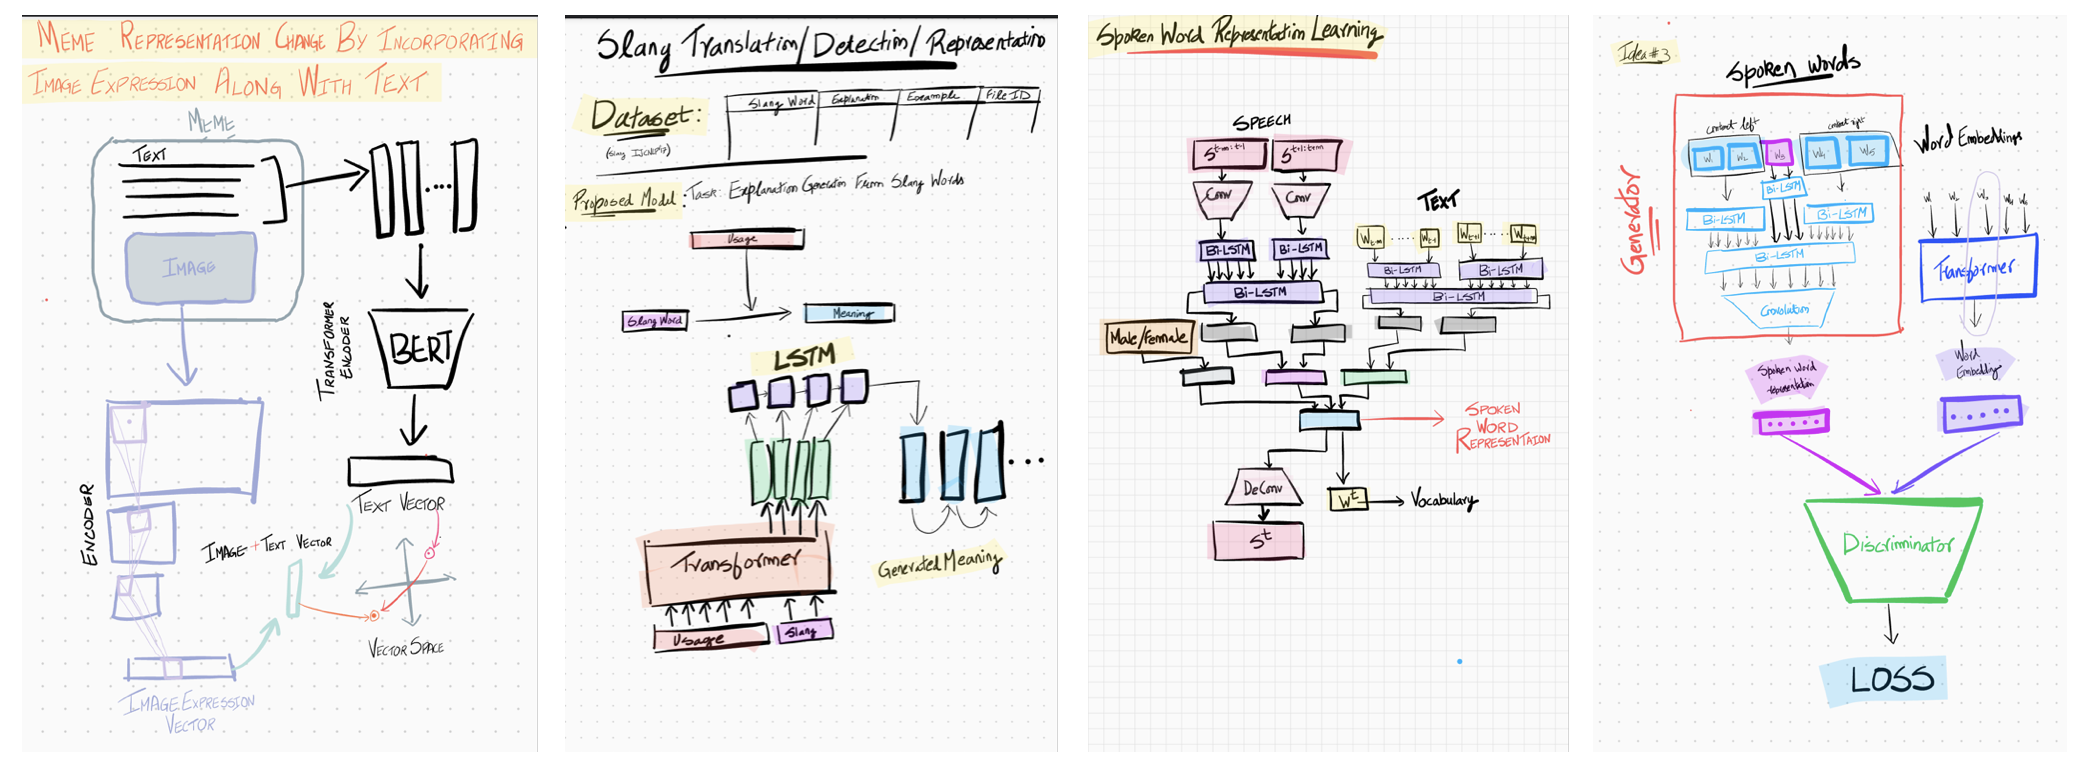 MEME REPRESENTATION CHANGE BY INCORPORATING
IMAGE EXPRESSION ALONG WITH TEXT
MEME
TEXT
IMAGE
TRANSFORMER
ENCODER
BERT
ENCODER
TEXT VECTOR
IMAGE + TEXT VECTOR
VECTOR SPACE
IMAGE EXPRESSION
VECTOR
Slang Translation/Detection/Representation
Dataset:
Slang Word Explanation Example File ID
Proposed Model: Task: Explanation Generation From Slang Words
Usage
Slang Word
Meaning
LSTM
Transformer
Generated Meaning
Usage
Slang
Spoken Word Representation Learning
SPEECH
S^t-m:t-1
S^t+1:t+m
Conv
Conv
TEXT
W_t-m ...... W_t-1
W_t+1 ...... W_t+m
Bi-LSTM
Bi-LSTM
Bi-LSTM
Bi-LSTM
Bi-LSTM
Bi-LSTM
Male/Female
SPOKEN
WORD
REPRESENTAION
DeConv
W^t
Vocabulary
S^t
Idea #3
Spoken Words
Generator
context left
context right
W₁ W₂ W₃ W₄ W₅
Bi-LSTM
Bi-LSTM
Bi-LSTM
Bi-LSTM
Convolution
Word Embeddings
W₁ W₂ W₃ W₄ W₅
Transformer
Spoken Word
representation
Word
Embedding
Discriminator
LOSS